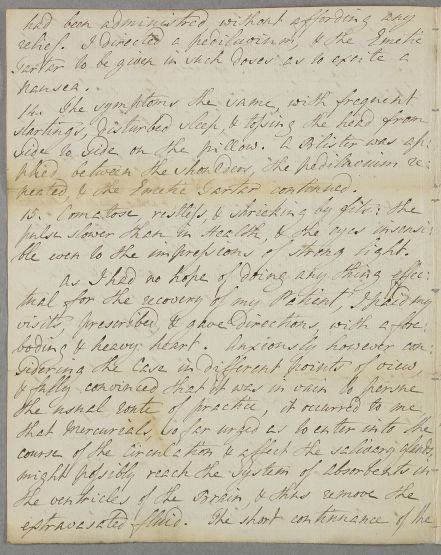 had been administred without affording any
relief. I directed a pediluvium, & the Emetic
Tartar to be given in such doses as to excite a
nausea.
14. The symptoms the same, with frequent
startings, disturbed sleep, & tossing the head from
side to side on the pillow. A Blister was ap-
plied between the shoulders, the pediluvium re-
peated, & the Emetic Tartar continued.
15. Comatose, restless, & shrieking by fits: the
pulse slower than in Health, & the eyes insensi-
ble even to the impressions of strong light.
As I had no hope of doing any thing effec-
tual for the recovery of my Patient, I paid my
visits, prescribed, & gave directions, with a fore-
boding & heavy heart. Anxiously however con-
sidering the Case in different points of view,
& fully convinced that it was in vain to persue
the usual route of practice, it occurred to me
that Mercurials, so far urged as to enter into the
course of the Circulation & affect the salivary glands,
might possibly reach the System of absorbents in
the ventricles of the Brain, & thus remove the
extravasated fluid. The short continuance of the